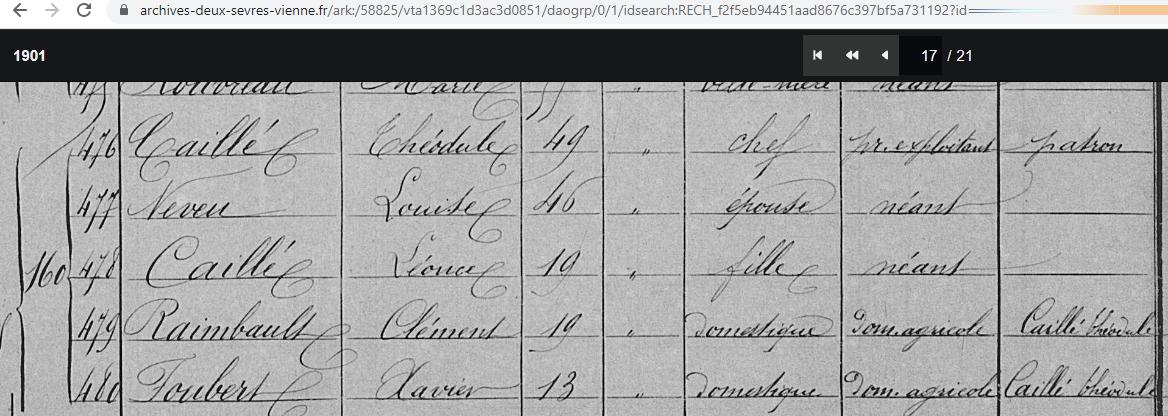 archives-deux-sevres-vienne.fr/ark:/58825/vta1369c1d3ac3d0851/daogrp/0/1/idsearch:RECH_f2f5eb94451aad8676c397bf5a731192?id=
1901 17 / 21
475 Marie " belle-mère néant
476 Caillé Théodule 49 " chef pr. exploitant patron
477 Neveu Louise 46 " épouse néant
160 478 Caillé Léonce 19 " fille néant
479 Raimbault Clément 19 " domestique Dom. agricole Caillé théodule
480 Foubert Xavier 13 " domestique Dom. agricole Caillé théodule